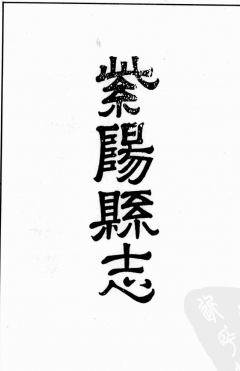 紫陽縣志